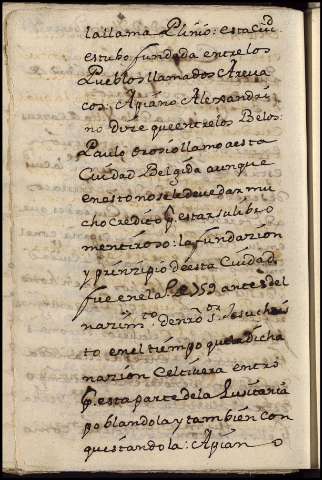 la llama Plinio: esta Ciud.
estubo fundada entre los
Pueblos llamados Areua
cos: Apiano Alexandri
no dize que entre los Belos:
Paulo Orosio llamo a esta
Ciudad Belgida aunque
en esto no se le deve dar mu
cho credito p. estar su libro
mentiroso: la fundazion
y prinzipio de esta Ciudad
fue en el a. de 759 antes del
nazim.to de nro S.or Jesuchris
to en el tiempo que la dicha
nazion Celtivera entró
p. esta parte de la Lusitania
poblandola y tambien con
quistandola: Apiano